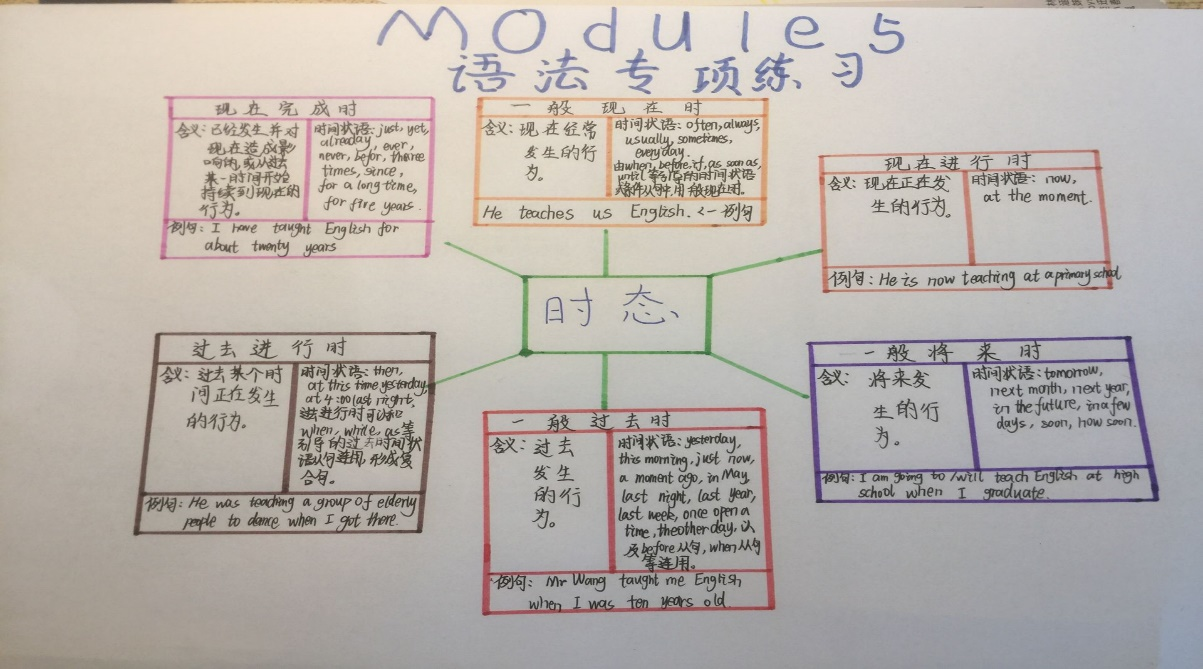 Module 5
语法专项练习
现在完成时
含义：已经发生并对
现在造成影
响的，或从过去
某一时间开始
持续到现在的
行为。
时间状语：just, yet,
alreaday, ever,
never, befor, theree
times, since,
for a long time,
for five years.
例句：I have taught English for
about twenty years
一般现在时
含义：现在经常
发生的行
为。
时间状语：often, always,
usually, sometimes,
everyday.
由when, before, if, as soon as,
until 等引导的时间状语
条件从句中，用一般现在用。
He teaches us English. <— 例句
现在进行时
含义：现在正在发
生的行为。
时间状语：now,
at the moment.
例句：He is now teaching at a primary school
时态
过去进行时
含义：过去某个时
间正在发生
的行为。
时间状语：then,
at this time yesterday,
at 4:00 last night,
过去进行时可以和
when, while, as等
引导的过去时间状
语从句连用，形成复
合句。
例句：He was teaching a group of elderly
people to dance when I got there.
一般过去时
含义：过去
发生
的行
为。
时间状语：yesterday,
this morning, just now,
a moment ago, in May,
last night, last year,
last week, once open a
time, theother day, 以
及before从句，when从句
等连用。
例句：Mr Wang taught me English
when I was ten years old.
一般将来时
含义：将来发
生的行
为。
时间状语：tomorrow,
next month, next year,
in the future, in a few
days, soon, how soon.
例句：I am going to /will teach English at high
school when I graduate.